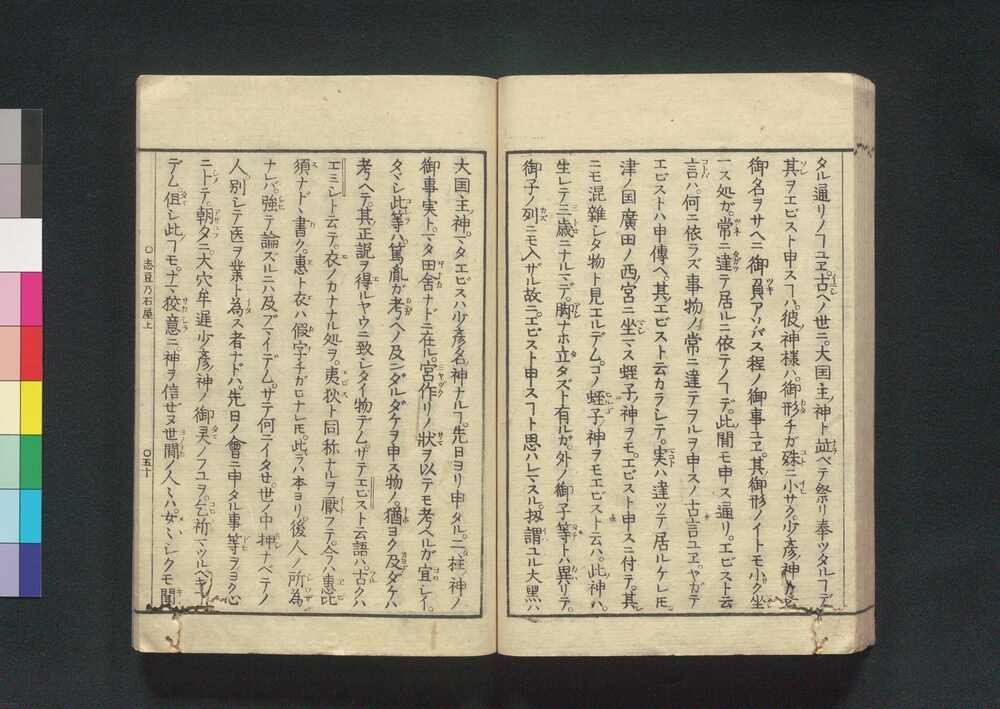 タル通リノヿユヱ。古ヘノ世ニ。大国主ノ神ト並ベテ祭リ奉ツタルヿデ
其ヲエビスト申スヿハ。彼ノ神様ハ。御形チガ殊ニ小サク。少彦ノ神
御名ヲサヘニ御負アソバス程ノ御事ユヱ。其御形ノイトモ小ク坐
一ス処ガ。常ニ違テ居ルニ依テノヿデ。此間モ申ス通リ。エビスト云
言ハ。何ニ依ラズ事物ノ常ニ違テヲルヲ申スノ古言ユヱ。ヤガテ
エビストハ申傳ヘ。其エビスト云カラシテ。実ハ違ツテ居ルケレ𪜈
津ノ国廣田ノ西ノ宮ニ坐マス蛭子ノ神ヲモ。エビスト申スニ付テ。其
ニモ混雑シタ物ト見エルデム。コノ蛭子ノ神ヲモエビスト云ハ。此ノ神ハ。
生レテ三歳ニナルマデ。脚ナホ立タズト有ルガ。外ノ御子等トハ異リテ。
御子ノ列ニモ入ザル故ニ。エビスト申スヿト思ハレマスル。扨謂ユル大黒ハ
大国主ノ神。マタエビスハ少彦名ノ神ナルヿ。先日ヨリ申タル。二柱ノ神ノ
御事実ト。マタ田舎ナドニ在ル。宮作リノ狀ヲ以テモ考ヘルガ宜シイ。
タヾシ此等ハ。篤胤ガ考ヘノ及ンダルダケヲ申ス物ノ。猶ヨク及ダケハ
考ヘテ。其ノ正説ヲ得ルヤウニ致シタイ物デム。サテエビスト云語ハ。古クハ
エミシト云テ。衣ノカナナル処ヲ。夷狄ト同称ナルヲ厭フテ。今ハ惠比
須ナド丶書ク。惠ト衣ハ假字チガヒナレ𪜈。此ラハ本ヨリ。後人ノ所為
ナレバ。強テ論ズルニハ及ブマイデム。サテ何ニイタせ。世ノ中押ナベテノ
人。別シテ医ヲ業ト為ス者ナドハ。先日ノ會ニ申タル事等ヲヨク心
ニトテ。朝タニ。大穴牟遅少彦ノ神ノ御灵ノフユヲ。乞祈マツルベキ
デム。但シ此ヿモ。ナマ狡意ニ神ヲ信ぜヌ世間ノ人々ハ。女々シクモ聞
○志豆乃石屋上
○五十